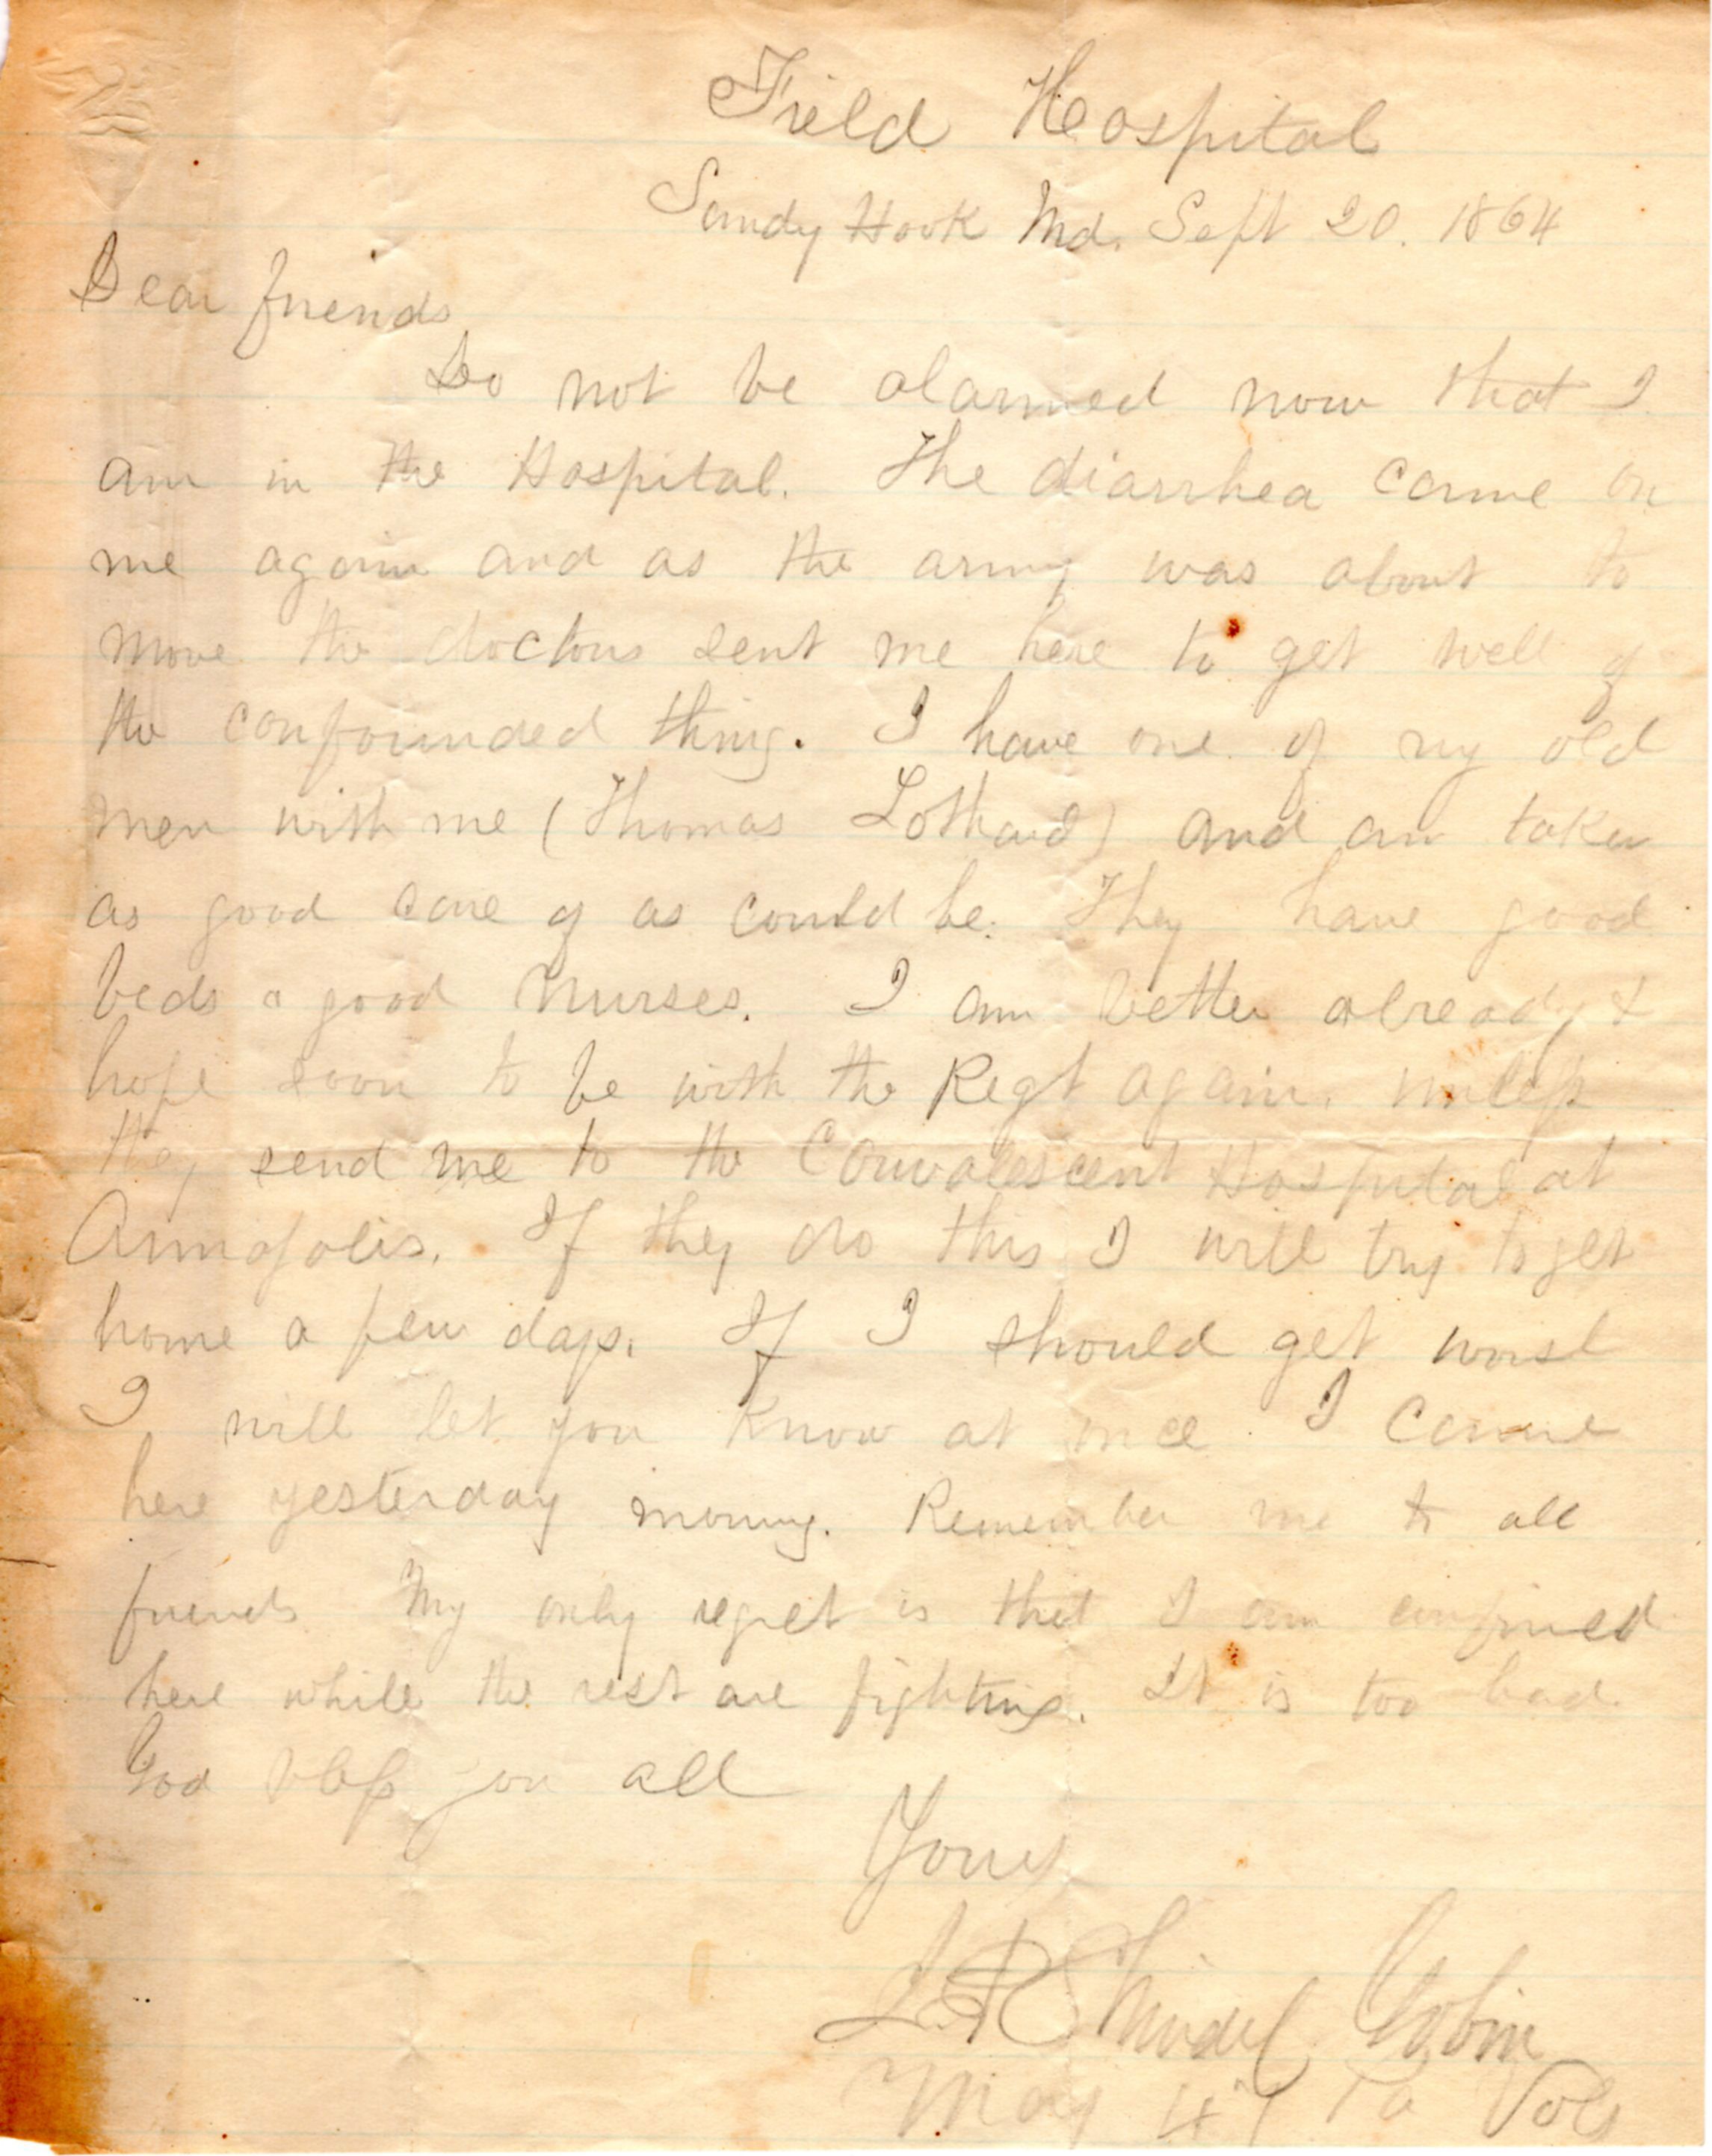 Field Hospital
Sandy Hook Md. Sept 20. 1864
Dear friends
Do not be alarmed now that I
am in the Hospital. The diarrhea came on
me again and as the army was about to
move the doctors sent me here to get well of
the confounded thing. I have one of my old
men with me (Thomas Lothard) and am taken
as good care of as could be. They have good
beds & good nurses. I am better already &
hope soon to be with the Regt again. unless
they send me to the Convalescent Hospital at
Annapolis. If they do this I will try to get
home a few days. If I should get worse
I will let you know at once. I came
here yesterday morning. Remember me to all
friends My only regret is that I am confined
here while the rest are fighting. It is too bad.
God bless you all
Yours
J.P. Shindel Gobin
Maj 47 Pa Vols